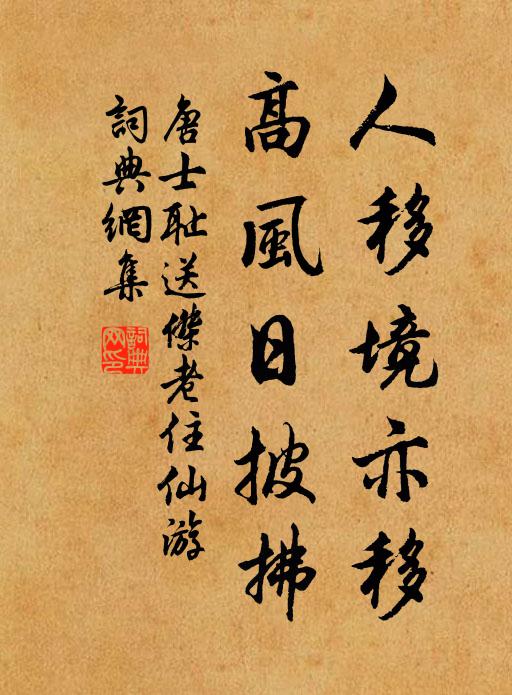 人移境亦移
高風日披拂
唐士耻送傑老住仙游
詞典網集
詞典网印